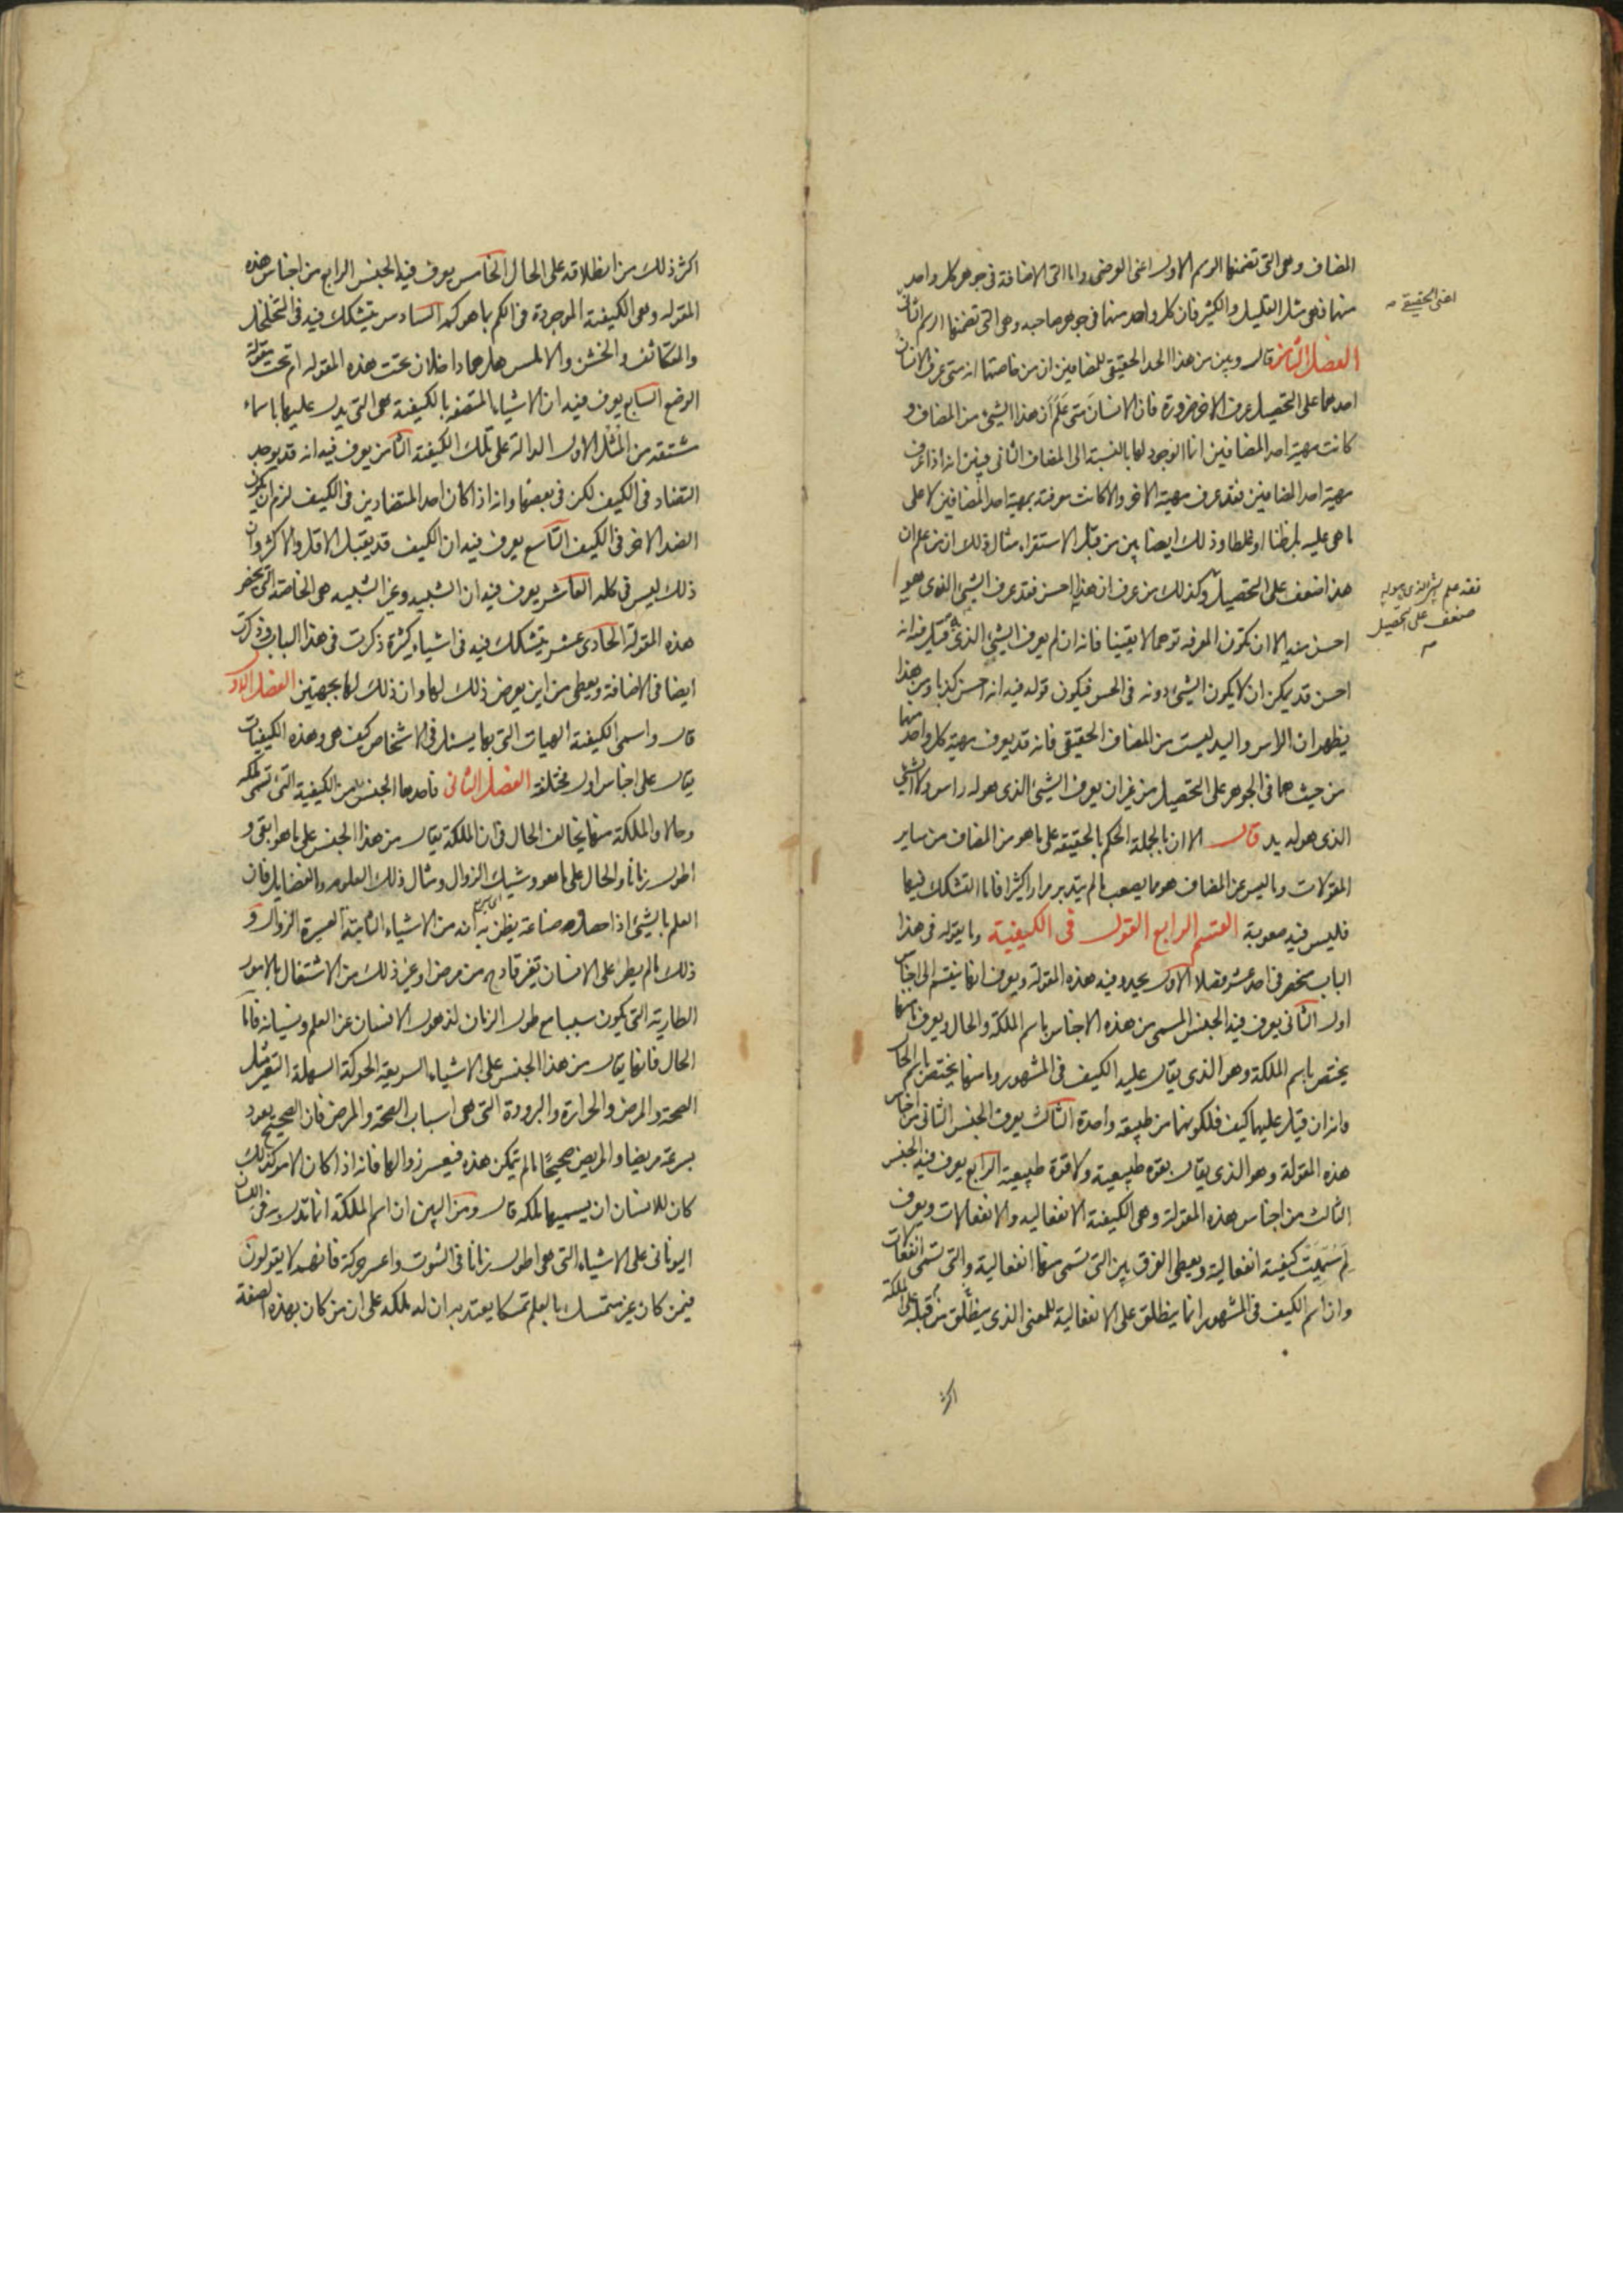 المضاف وهى التى تضمنها الرسم الاول اعنى العرضى واما التى الاضافة فى جوهر كل واحد
منهما فهى مثل القليل والكثير فان كل واحد منهما فى جوهر صاحبه وهى التى تضمنها الرسم الثانى
اعنى الحقيقى
الفصل الثامن قال وبين من هذا الحد الحقيقى للمضافين ان من خاصتهما انه متى عرف الانسان
احدهما على التحصيل عرف الاخر ضرورة فان الانسان متى علم ان هذا الشىء من المضاف و
كانت مهية احد المضافين انما الوجود لها بالنسبة الى المضاف الثانى فبين انه اذا عرف
مهية احد المضافين فقد عرف مهية الاخر والا كانت معرفته بمهية احد المضافين لا على
ما هى عليه بل ظنا او غلطا وذلك ايضا بين من قبل الاستقراء مثال ذلك ان من علم ان
هذا ضعف على التحصيل وكذلك من عرف ان هذا احسن فقد عرف الشىء الذى هو
فقد علم الشىء الذى هو له ضعف على التحصيل
احسن منه الا ان تكون المعرفه توهما لا يقينا فانه ان لم يعرف الشىء الذى قيل فيه انه
احسن قد يمكن ان لا يكون الشىء دونه فى الحسن فيكون قوله فيه انه احسن كذبا ومن هذا
يظهر ان الراس واليد ليست من المضاف الحقيقى فانه قد يعرف مهية كل واحد منهما
من حيث هما فى الجوهر على التحصيل من غير ان يعرف الشىء الذى هو له راس ولا الشىء
الذى هو له يد قال الا ان بالجملة الحكم بالحقيقه على ما هو من المضاف من ساير
المقولات وما ليس من المضاف هو مما يصعب ما لم يتدبر مرارا كثيرا فاما التشكك فيها
فليس فيه صعوبة القسم الرابع القول فى الكيفية وما يقوله فى هذا
الباب ينحصر فى احد عشر فصلا الاول يحدد فيه هذه المقولة ويعرف انها ينقسم الى اجناس
اول الثانى يعرف فيه الجنس المسمى من هذه الاجناس باسم الملكة والحال ويعرف ما منها
يختص باسم الملكة وهو الذى يقال عليه الكيف فى المشهور وما منها يختص باسم الحال
وانه ان قيل عليهما كيف فلكونهما من طبيعة واحدة الثالث يعرف الجنس الثانى من اجناس
هذه المقولة وهو الذى يقال بقوه طبيعية ولا قوة طبيعية الرابع يعرف فيه الجنس
الثالث من اجناس هذه المقولة وهى الكيفية الانفعاليه والانفعالات ويعرف
لم سميت كيفية انفعالية ويعطى الفرق بين التى تسمى منها انفعالية والتى تسمى انفعالات
وان اسم الكيف فى المشهور انما ينطلق على الانفعالية للمعنى الذى ينطلق من قبله على الملكة
اكثر
اكثر ذلك من انطلاقه على الحال الخامس يعرف فيه الجنس الرابع من اجناس هذه
المقوله وهى الكيفية الموجودة فى الكم بما هو كم السادس يتشكك فيه فى المتخلخل
والمتكاثف والخشن والاملس هل هما داخلان تحت هذه المقوله ام تحت مقولة
الوضع السابع يعرف فيه ان الاشياء المتصفه بالكيفية هى التى يدل عليها باسماء
مشتقه من المثل الاول الدالة على تلك الكيفية الثامن يعرف فيه انه قد يوجد
التضاد فى الكيف لكن فى بعضها وانه اذا كان احد المتضادين فى الكيف لزم ان يكون
الضد الاخر فى الكيف التاسع يعرف فيه ان الكيف قد يقبل الاقل والاكثر وان
ذلك ليس فى كله العاشر يعرف فيه ان الشبيه وغير الشبيه هى الخاصة التى تخص
هذه المقولة الحادى عشر يتشكك فيه فى اشياء كثيرة ذكرت فى هذا الباب وذكرت
ايضا فى الاضافة ويعطى من اين يعرض ذلك لها وان ذلك لها بجهتين الفصل الاول
قال واسمى الكيفية الهيات التى بها يسئل فى الاشخاص كيف هى وهذه الكيفيات
يقال على اجناس اول مختلفة الفصل الثانى فاحدها الجنس من الكيفية التى تسمى ملكه
وحالا والملكة منها يخالف الحال فى ان الملكة يقال من هذا الجنس على ما هو ابقى و
اطول زمانا والحال على ما هو وشيك الزوال ومثال ذلك العلوم والفضايل فان
العلم بالشىء اذا حصل صناعة يظن به انه من الاشياء الثابتة العسيرة الزوال و
ذلك ما لم يطر على الانسان تغير فادح من مرض او غير ذلك من الاشتغال بالامور
الطارية التى يكون سببا مع طول الزمان لذهول الانسان عن العلم ونسيانه فاما
الحال فانها يقال من هذا الجنس على الاشياء السريعة الحركة السهلة التغير مثل
الصحة والمرض والحرارة والبرودة التى هى اسباب الصحة والمرض فان الصحيح يعود
بسرعة مريضا والمريض صحيحا ما لم يتمكن هذه فيعسر زوالها فانه اذا كان الامر كذلك
كان للانسان ان يسميها ملكه قال ومن البين ان اسم الملكة انما تدل به فى اللسان
اليونانى على الاشياء التى هى اطول زمانا فى الثبوت واعسر حركة فانهم لا يقولون
فيمن كان غير متمسك بالعلم تمسكا يعتد به ان له ملكه على ان من كان بهذه الصفة